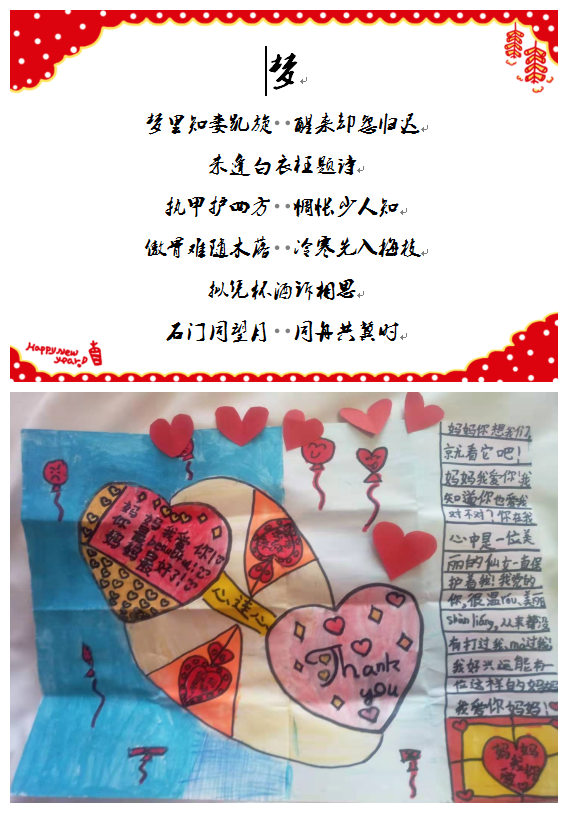 梦
梦里知妻凯旋··醒来却怨归迟
未逢白衣枉题诗
执甲护四方··惆怅少人知
傲骨难随木落··冷寒先入梅枝
拟凭杯酒诉相思
石门同望月··同舟共冀时
Happy new
year.
妈妈我爱你!
你最beautiful!
妈妈最好了!
心连心
Thank
you
妈妈你想我们,
就看它吧!
妈妈我爱你!我
知道你也爱我
对不对?你在我
心中是一位美
丽的仙女一直保
护着我!我爱的
你,很温rou、美丽
shàn liáng,从来都没
有打过我、mà过我,
我好兴运能有一
位这样的妈妈
我爱你妈妈!
妈妈
我你
爱